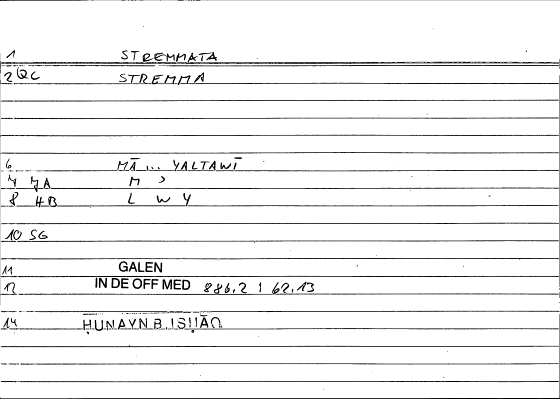 1 STREMMATA
2 QC STREMMA
6 MĀ ... YALTAWĪ
7 JA M ʾ
8 HB L W Y
10 SG
11 GALEN
12 IN DE OFF MED 886,2 | 62,13
14 ḤUNAYN B. ISḤĀQ